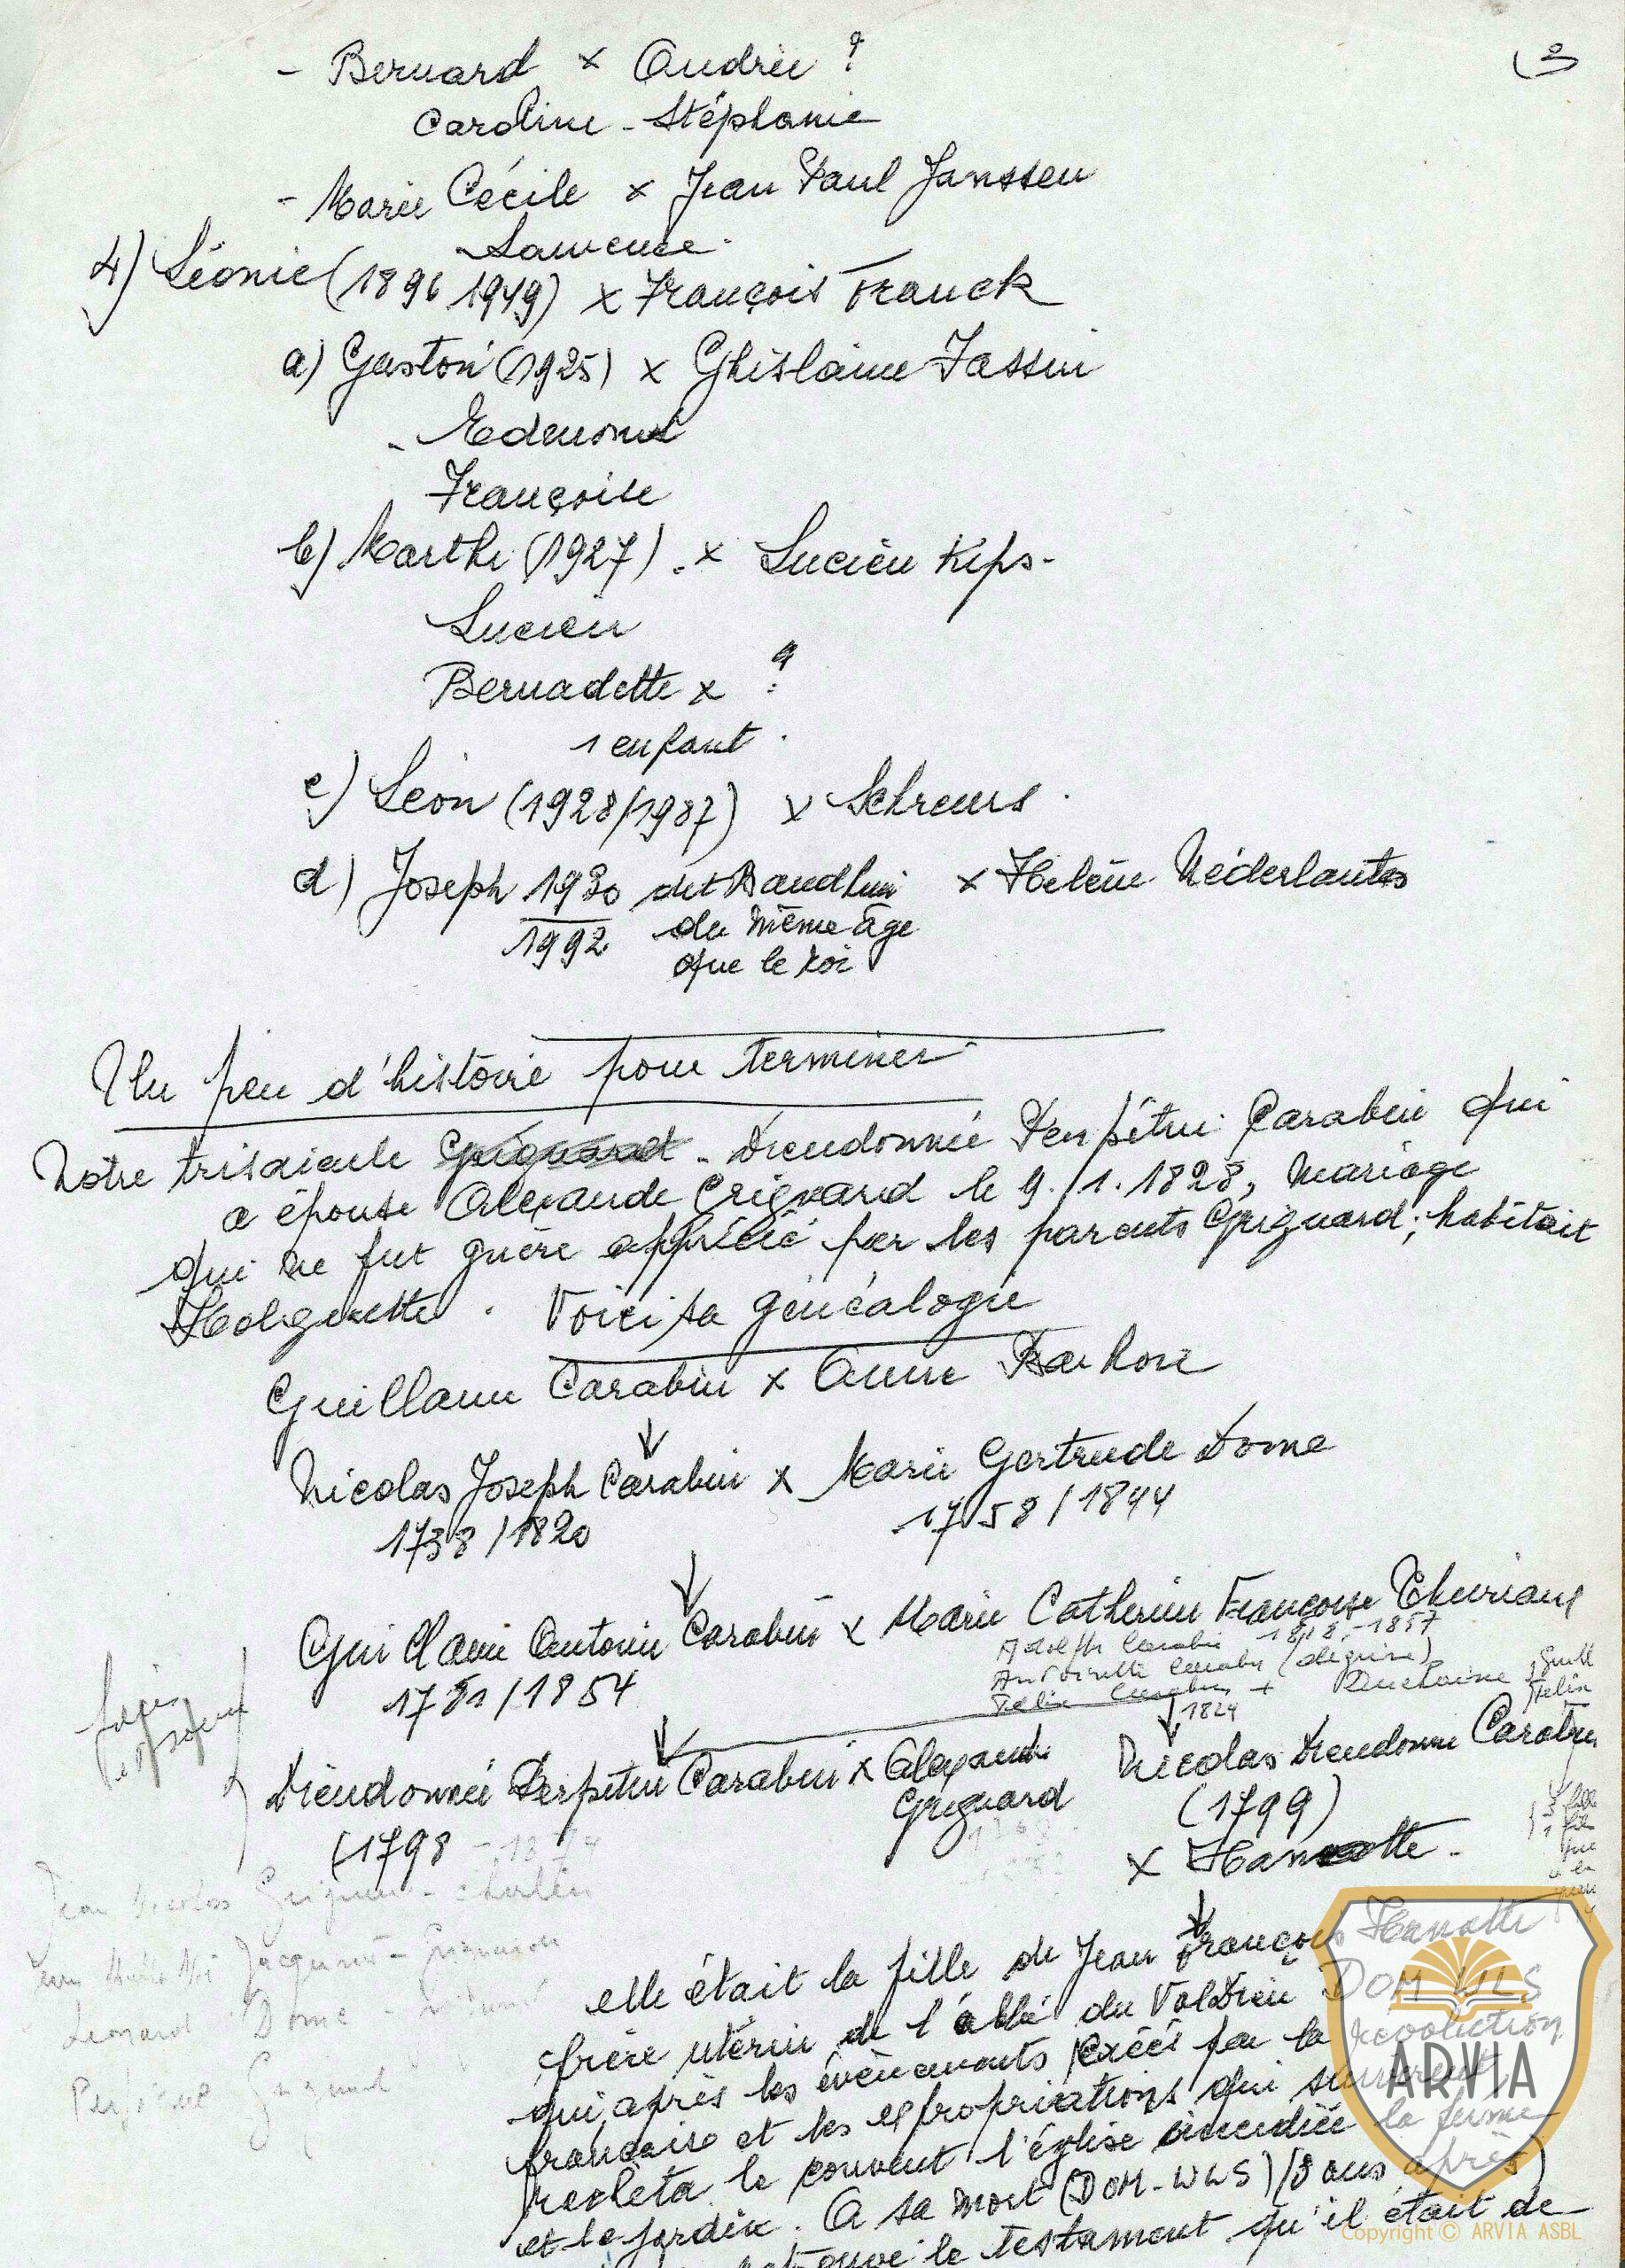 - Bernard x Andrée ?
Caroline - Stéphanie
- Marie Cécile x Jean Paul Janssen
Laurence.
4) Léonie (1896 1949) x François Franck
a) Gaston (1925) x Ghislaine Jassin
- Edmond
Françoise
b) Marthe (1927). x Lucien Kips-
Lucien
Bernadette x ?
1 enfant.
c) Léon (1928/1987) x Schreurs.
d) Joseph 1930 dit Baudhuin x Hélène Néderlants
1992 du même âge
que le roi
Un peu d'histoire pour terminer
Notre trisaieule - Dieudonnée Perpétue Carabin qui
a épousé Alexandre Grignard le 9.1.1828, mariage
qui ne fut guère apprécié par les parents Grignard; habitait
. Voici sa généalogie
Guillaume Carabin x Anne
Nicolas Joseph Carabin x Marie Gertrude Dome
1738/1820 1758/1844
Guillaume Antoine Carabin x Marie Catherine Françoise
1818-1857
1781/1854
1824
Dieudonnée Perpétue Carabin x Alexandre
Grignard
Nicolas Dieudonné Carabin
(1798 - 1874
(1799)
x Hanotte-
Jean Nicolas Grignard -
Jacquinot - Grignard
Léonard Dome -
Perpétue Grignard
elle était la fille de Jean François Hanotte
frère utérin de l'abbé du Valdieu DOM ULS
qui, après les évènements créés par la révolution
française et les expropriations qui suivirent,
racheta le couvent l'église incendiée la ferme
et le jardin. A sa mort (DOM-ULS) (8 ans après)
le testament qu'il était de
ARVIA
Copyright © ARVIA ASBL